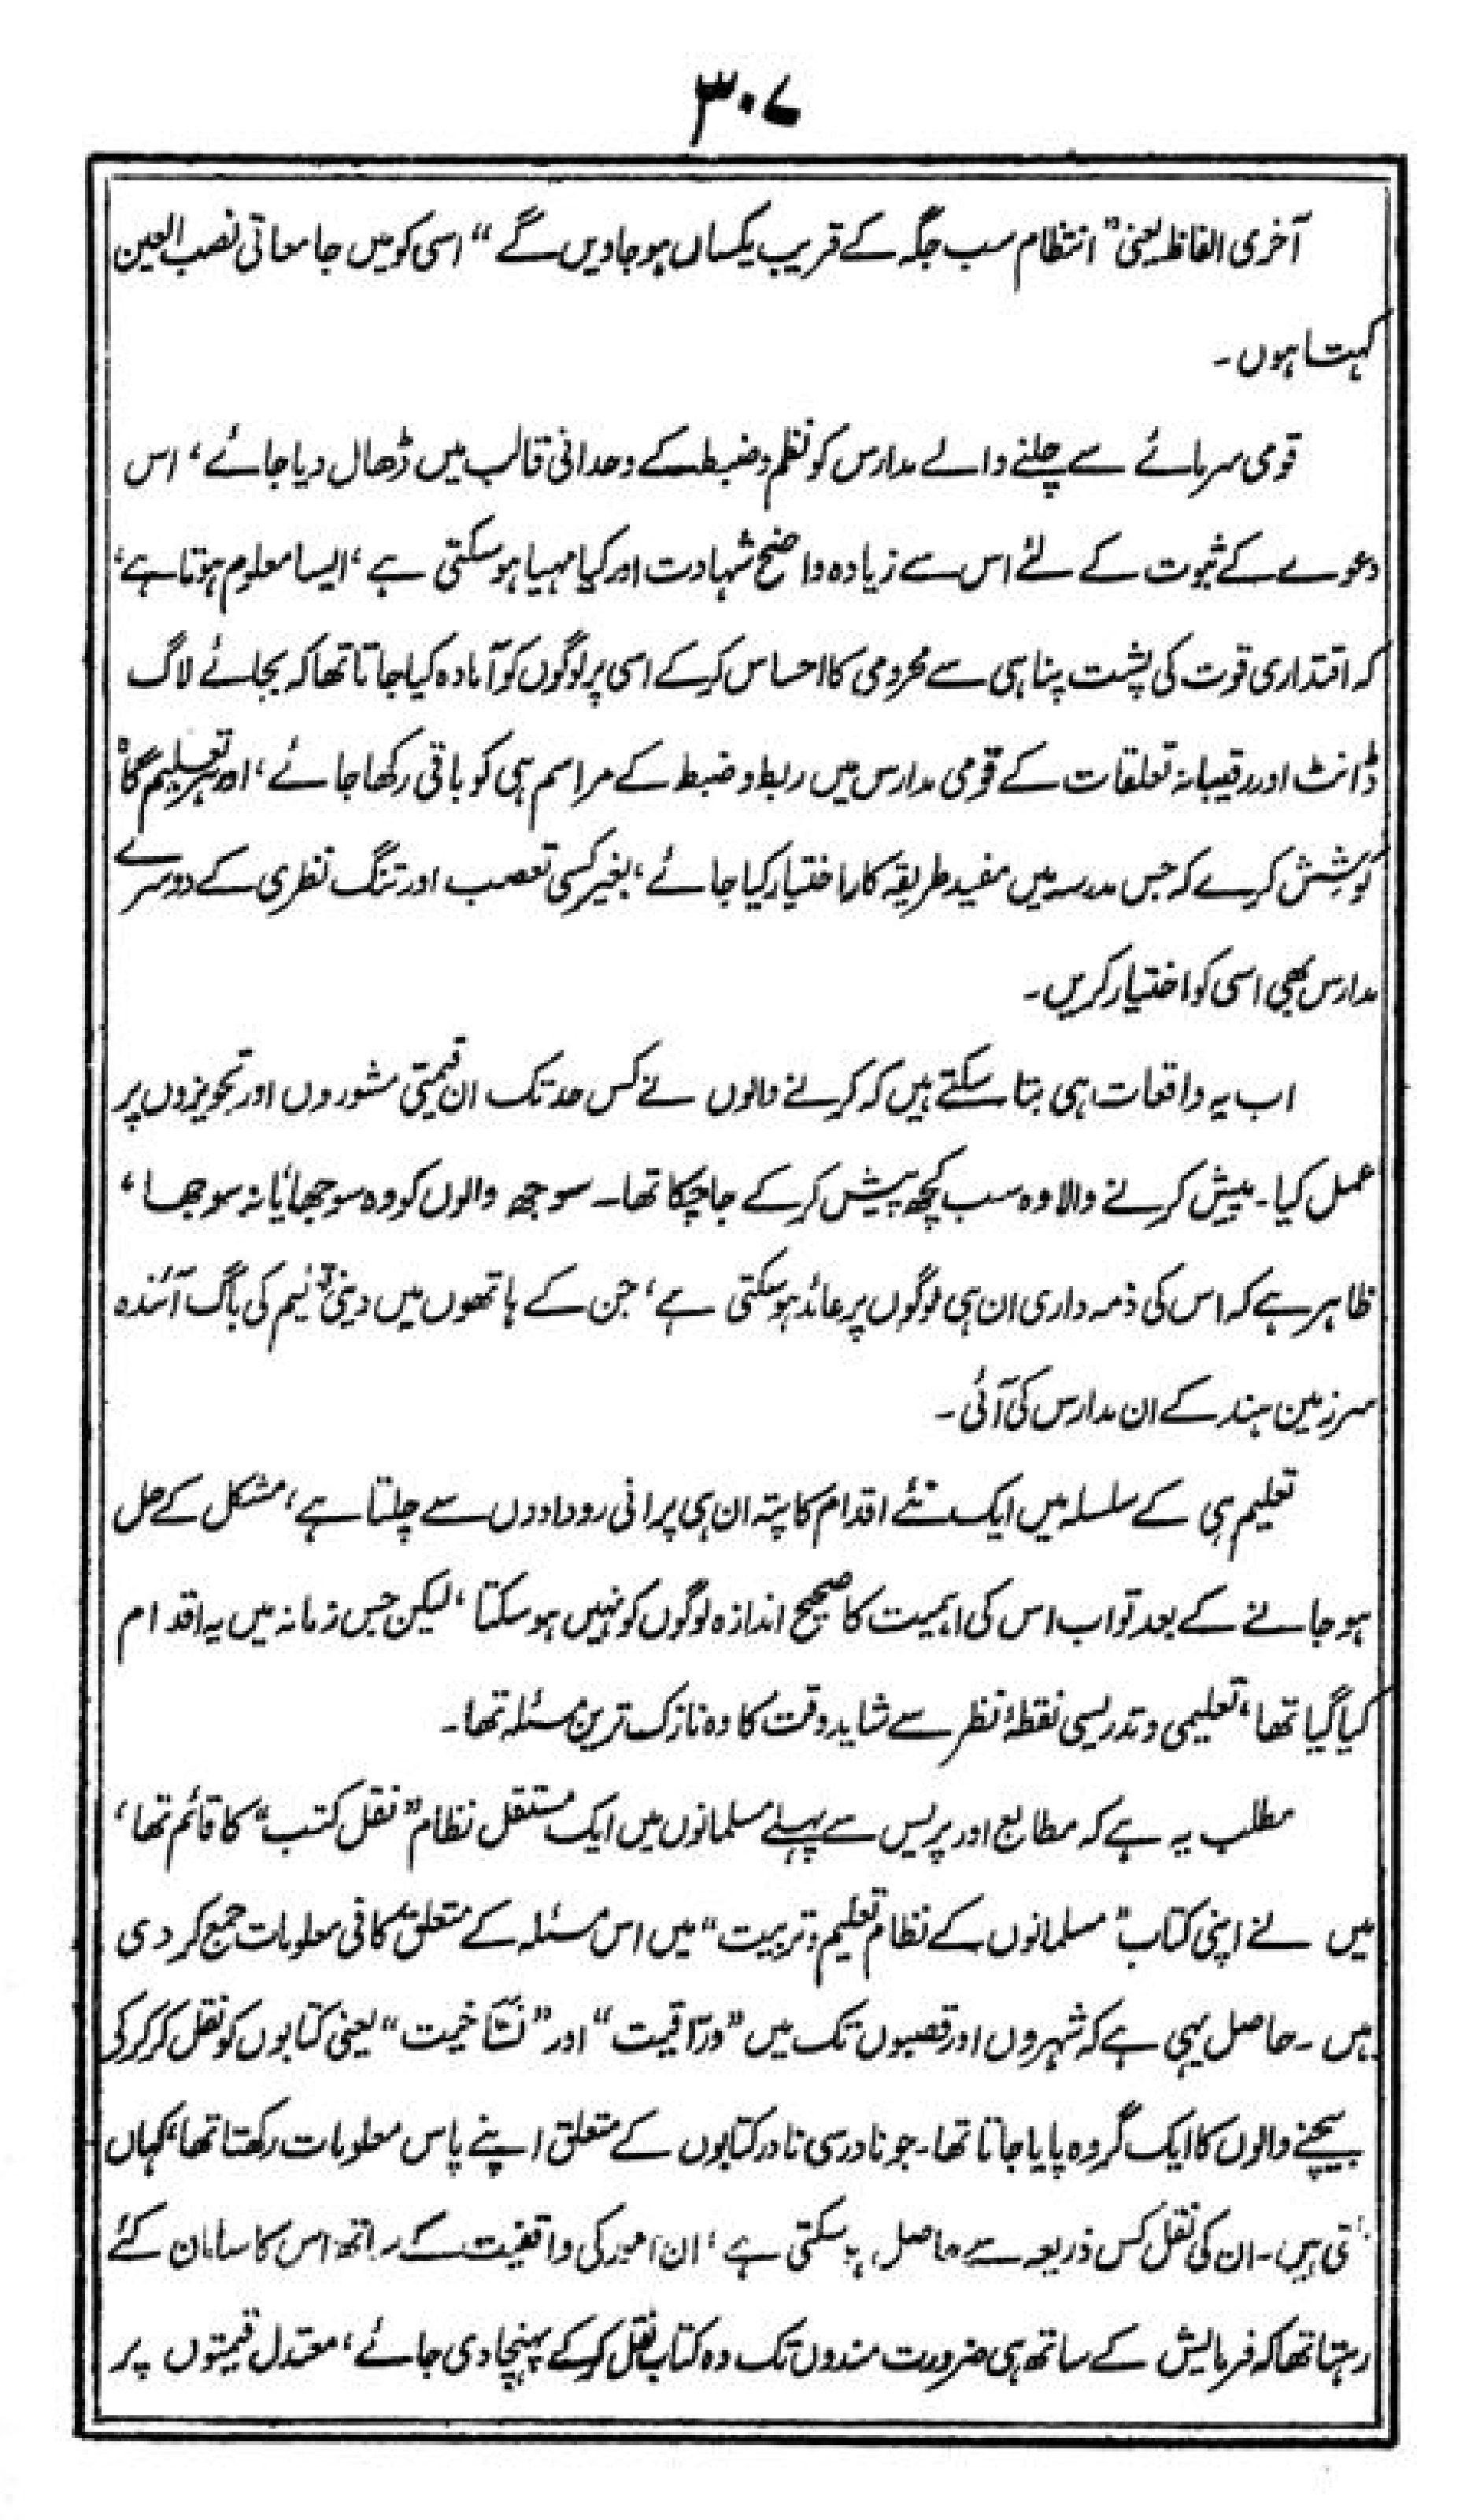 ۳۰۷
آخری الفاظ یعنی "انتظام سب جگہ کے قریب یکساں ہو جاویں گے" اسی کو میں جامعاتی نصب العین
کہتا ہوں۔
قومی سرمائے سے چلنے والے مدارس کو نظم و ضبط کے وحدانی قالب میں ڈھال دیا جائے، اس
دعوے کے ثبوت کے لئے اس سے زیادہ واضح شہادت اور کیا مہیا ہو سکتی ہے، ایسا معلوم ہوتا ہے،
کہ اقتداری قوت کی پشت پناہی سے محرومی کا احساس کرکے اسی پر لوگوں کو آمادہ کیا جاتا تھا کہ بجائے لاگ
ڈانٹ اور رقیبانہ تعلقات کے قومی مدارس میں ربط و ضبط کے مراسم ہی کو باقی رکھا جائے، اور ہر تعلیم گاہ
کوشش کرے کہ جس مدرسہ میں مفید طریقہ کار اختیار کیا جائے، بغیر کسی تعصب اور تنگ نظری کے دوسرے
مدارس بھی اسی کو اختیار کریں۔
اب یہ واقعات ہی بتا سکتے ہیں کہ کرنے والوں نے کس حد تک ان قیمتی مشوروں اور تجویزوں پر
عمل کیا۔ پیش کرنے والا وہ سب کچھ پیش کرکے جا چکا تھا۔ سوجھ والوں کو وہ سوجھا یا نہ سوجھا،
ظاہر ہے کہ اس کی ذمہ داری ان ہی لوگوں پر عائد ہو سکتی ہے، جن کے ہاتھوں میں دینی کی باگ آئندہ
سرزمین ہند کے ان مدارس کی آئی۔
تعلیم ہی کے سلسلہ میں ایک نئے اقدام کا پتہ ان ہی پرانی رودادوں سے چلتا ہے، مشکل کے حل
ہو جانے کے بعد تو اب اس کی اہمیت کا صحیح اندازہ لوگوں کو نہیں ہو سکتا، لیکن جس زمانہ میں یہ اقدام
کیا گیا تھا، تعلیمی و تدریسی نقطۂ نظر سے شاید وقت کا وہ نازک ترین مسئلہ تھا۔
مطلب یہ ہے کہ مطابع اور پریس سے پہلے مسلمانوں میں ایک مستقل نظام "نقل کتب" کا قائم تھا،
میں نے اپنی کتاب "مسلمانوں کے نظام تعلیم و تربیت" میں اس مسئلہ کے متعلق کافی معلومات جمع کر دی
ہیں۔ حاصل یہی ہے کہ شہروں اور قصبوں تک میں "ورّاقیت" اور "نسّاخیت" یعنی کتابوں کو نقل کر کر کی
بیچنے والوں کا ایک گروہ پایا جاتا تھا۔ جو نادر سی نادر کتابوں کے متعلق اپنے پاس معلومات رکھتا تھا، کہاں
ہیں۔ ان کی نقل کس ذریعہ سے حاصل ہو سکتی ہے، ان امور کی واقفیت کے ساتھ اس کا سامان کئے
رہتا تھا کہ فرمایش کے ساتھ ہی ضرورت مندوں تک وہ کتاب نقل کرکے پہنچا دی جائے، معتدل قیمتوں پر